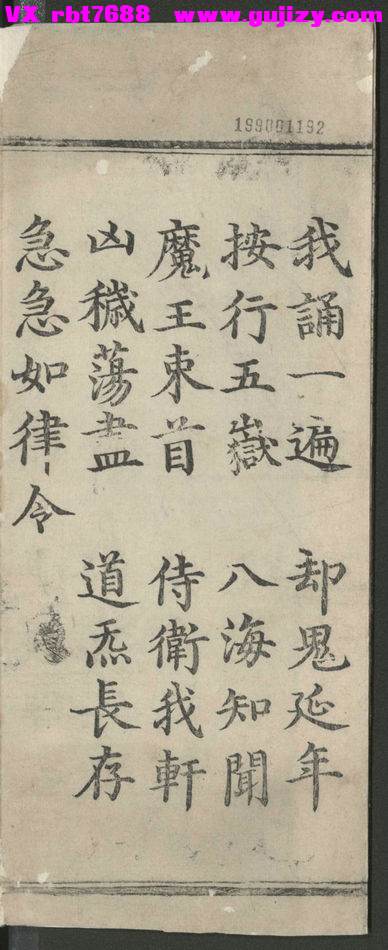 VX rbt7688 www.gujizy.com
199001192
我誦一遍 却鬼延年
按行五嶽 八海知聞
魔王束首 侍衛我軒
凶穢蕩盡 道炁長存
急急如律令